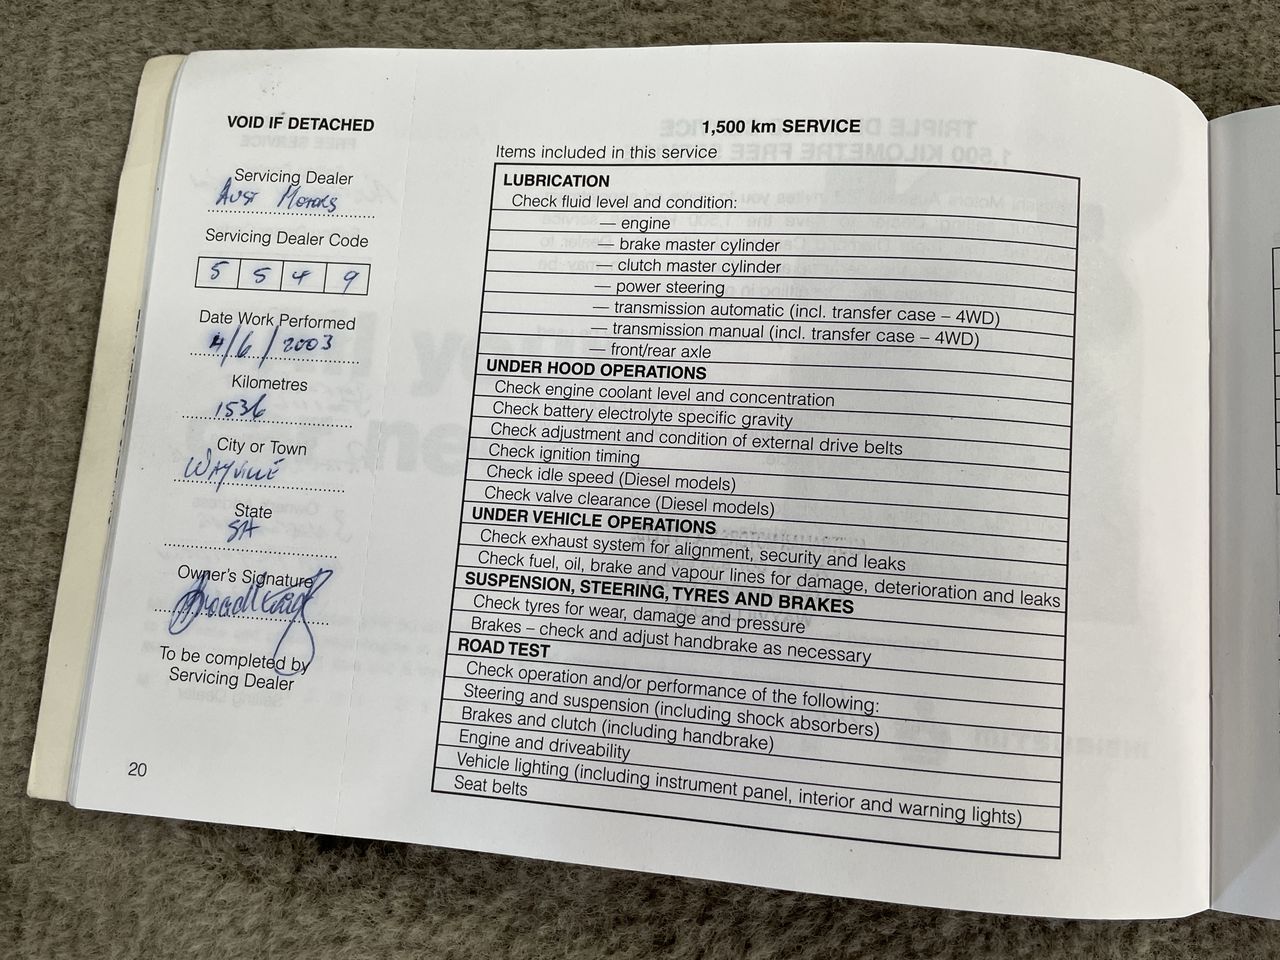 VOID IF DETACHED
Servicing Dealer
Aust Motors
Servicing Dealer Code
5 5 4 9
Date Work Performed
4/6/2003
Kilometres
1536
City or Town
WAYVILLE
State
SA
Owner's Signature
To be completed by
Servicing Dealer
20
1,500 km SERVICE
Items included in this service
LUBRICATION
Check fluid level and condition:
— engine
— brake master cylinder
— clutch master cylinder
— power steering
— transmission automatic (incl. transfer case – 4WD)
— transmission manual (incl. transfer case – 4WD)
— front/rear axle
UNDER HOOD OPERATIONS
Check engine coolant level and concentration
Check battery electrolyte specific gravity
Check adjustment and condition of external drive belts
Check ignition timing
Check idle speed (Diesel models)
Check valve clearance (Diesel models)
UNDER VEHICLE OPERATIONS
Check exhaust system for alignment, security and leaks
Check fuel, oil, brake and vapour lines for damage, deterioration and leaks
SUSPENSION, STEERING, TYRES AND BRAKES
Check tyres for wear, damage and pressure
Brakes – check and adjust handbrake as necessary
ROAD TEST
Check operation and/or performance of the following:
Steering and suspension (including shock absorbers)
Brakes and clutch (including handbrake)
Engine and driveability
Vehicle lighting (including instrument panel, interior and warning lights)
Seat belts